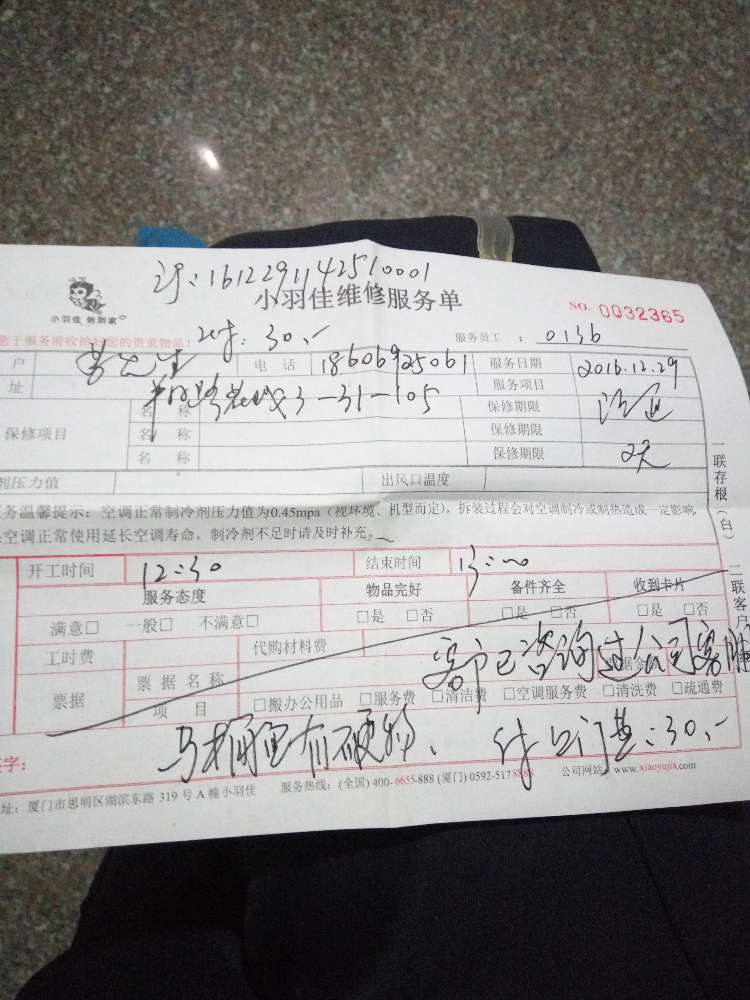 订:1612291142510001
小羽佳 做到家
小羽佳维修服务单
NO. 0032365
您于服务前收拾好您的贵重物品!
30.-
服务员工: 0136
户 先生 电话 18606925061 服务日期 2016.12.29
址 3-31-105 服务项目
保修项目 名称 保修期限
名称 保修期限
名称 保修期限 2天
剂压力值 出风口温度
务温馨提示:空调正常制冷剂压力值为0.45mpa(视环境、机型而定),拆装过程会对空调制冷或制热造成一定影响,
空调正常使用延长空调寿命,制冷剂不足时请及时补充。
一联存根(白) 二联客户
开工时间 12:30 结束时间 13:00
服务态度 物品完好 备件齐全 收到卡片
满意□ 一般□ 不满意□ □是 □否 □是 □否 □是 □否
工时费 代购材料费
客户已咨询过公司客服
票据 票据名称
项目 □搬办公用品 □服务费 □清洁费 □空调服务费 □清洗费 □疏通费
马桶里有硬物、 付上门费:30.-
签字:
址:厦门市思明区湖滨东路 319 号 A 幢小羽佳 服务热线:(全国) 400-6655-888 (厦门) 0592-5178888 公司网站:www.xiaoyujia.com